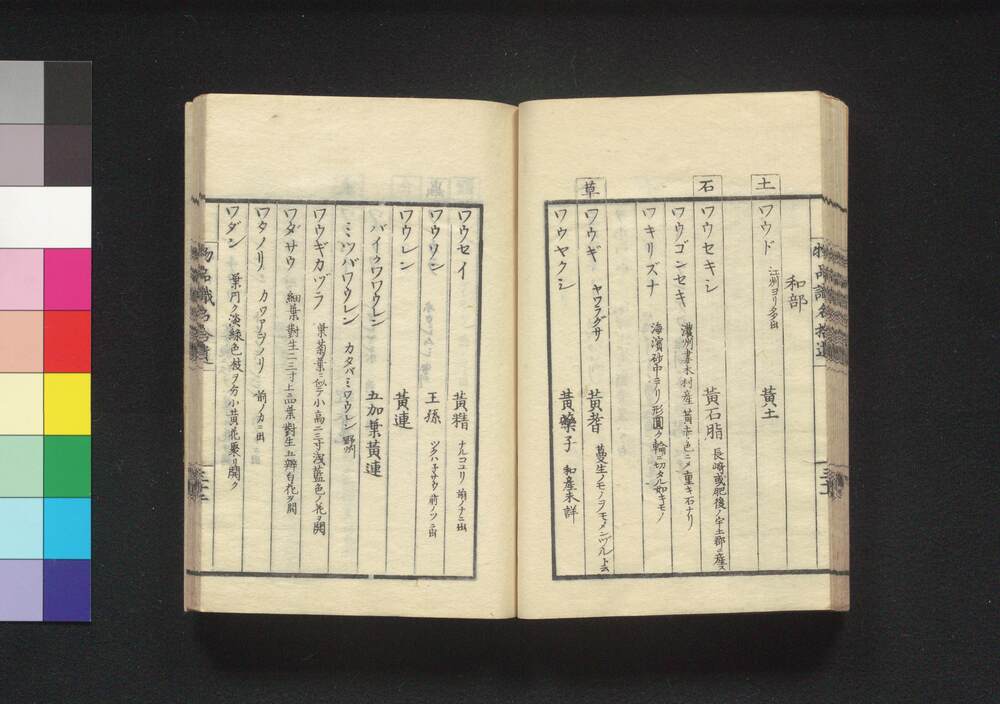 和部
土
ワウド 江州ヨリ多出 黄土
石
ワウセキシ 黄石脂 長崎或肥後ノ宇土郡ニ産ス
ワウゴンセキ 濃州 木村産 黄赤色ニメ重キ石ナリ
ワキリズナ 海濱砂中ニアリ形圓ク輪ニ切タル如キモノ
草
ワウギ ヤワラグサ 黄耆 蔓生ノモノヲモメンヅルト云
ワウヤクシ 黄藥子 和産未詳
ワウセイ 黄精 ナルコユリ 前ノナニ出
ワウソン 王孫 ツクハ子サウ 前ノツニ出
ワウレン 黄連
バイクワワウレン 五加葉黄連
ミツバワウレン カタバミワウレン 野州
ワウギカヅラ 葉菊葉ニ似テ小高二三寸浅藍色ノ花ヲ開
ワダサウ 細葉對生二三寸上ニ四葉對生五瓣白花ヲ開
ワタノリ カワアヲノリ 前ノカニ出
ワダン 葉円ク淡緑色枝ヲ分小黄花裹リ開ク
物品識名拾遺